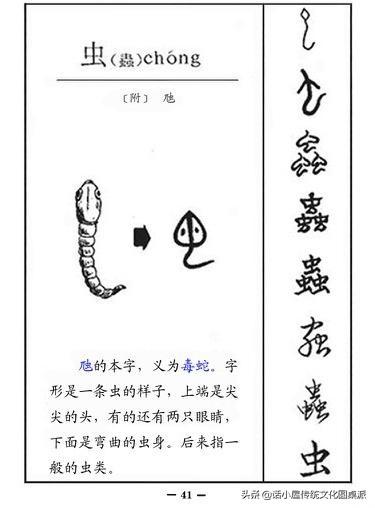 虫(蟲)chóng
〔附〕 虺
虺的本字，义为毒蛇。字
形是一条虫的样子，上端是尖
尖的头，有的还有两只眼睛，
下面是弯曲的虫身。后来指一
般的虫类。
— 41 —
蟲
蟲
蟲
蟲
虫
头条 @诺小屋传统文化圆桌派